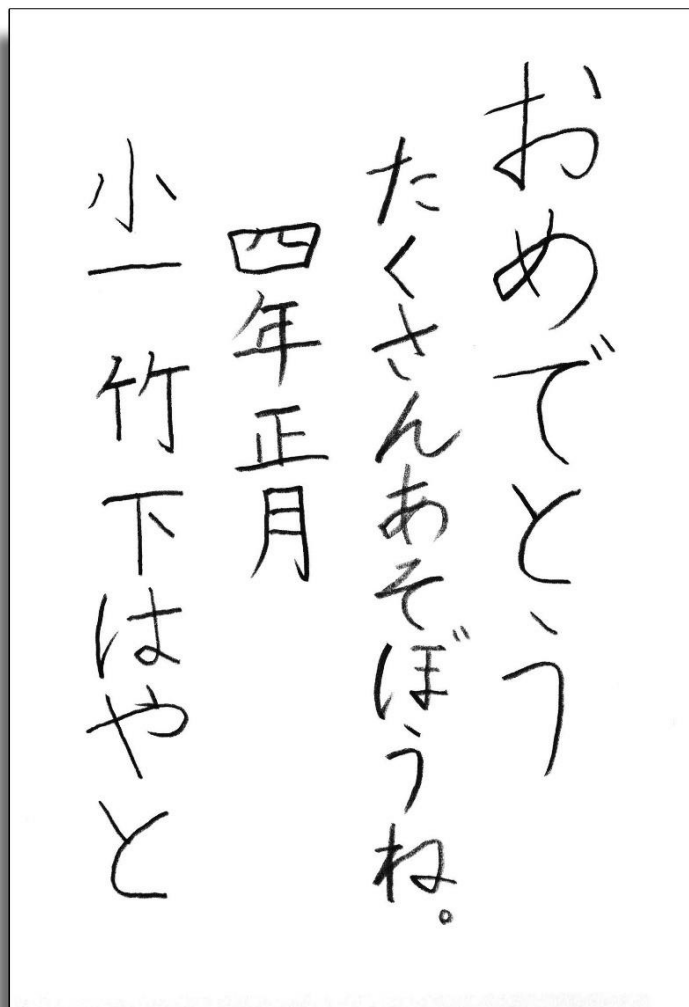 おめでとう
たくさんあそぼうね。
四年正月
小一竹下はやと